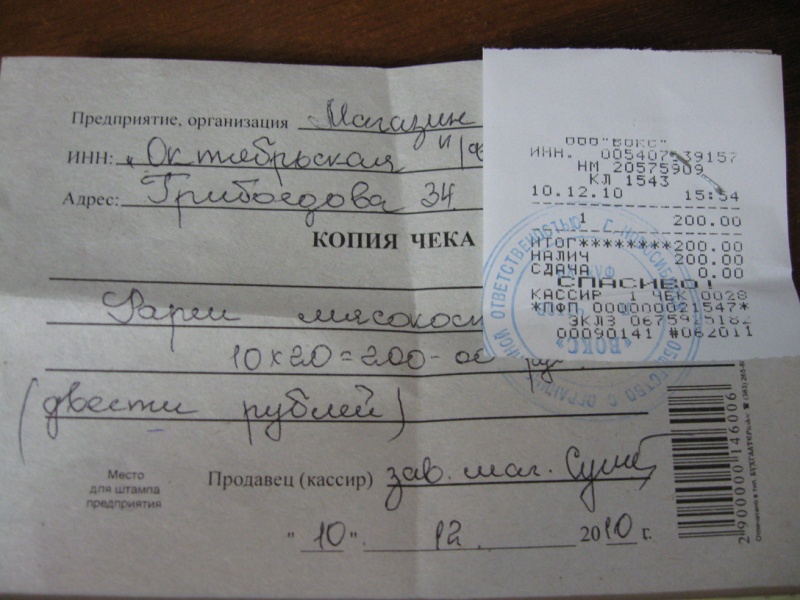 Предприятие, организация Магазин
ИНН: "Октябрьская
Адрес: Грибоедова 34
КОПИЯ ЧЕКА
Фарш мясокос
10 х 20 = 200-00
(двести рублей)
Место
для штампа
предприятия
Продавец (кассир) зав. маг.
"10" 12 2010 г.
ООО "ВОКС"
ИНН. 005407 39157
НМ 20575909
КЛ 1543
10.12.10 15:54
1 200.00
ИТОГ********200.00
НАЛИЧ 200.00
СДАЧА 0.00
СПАСИБО!
КАССИР 1 ЧЕК 0028
*ПФП 000000021547*
ЭКЛЗ
00090141 #062011
ОТВЕТСТВЕННОСТЬЮ
ОБЩЕСТВО С ОГРАНИЧЕННОЙ
"ВОКС"
2 900000 146006